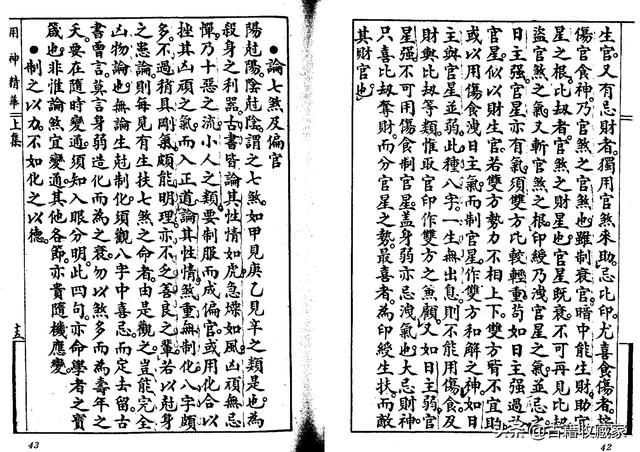 生官又有忌財者獨用官煞來助忌比印尤喜食傷者
傷官食神乃官煞之官煞也雖制衰官暗中能生財助官
星之根比劫者官煞之財星也官星既衰不可再見比劫
盜官煞之氣又斬官煞之根印綬乃洩官星之氣並忌之
日主強官星亦有氣須雙方比較輕重苟如日主強過於
官星似以財生官若雙方勢力不相上下雙方皆不宜
或以用傷食洩日主氣而制官星作雙方和解之神如日
主與官星並弱此種八字一生無出息則不能用傷食及
財與比劫等類惟取官印作雙方之兼顧又如日主弱官
星強不可用傷食制官星蓋身弱亦忌洩氣也大忌財神
只喜比劫奪財而分官星之勢最喜者為印綬生扶而敵
其財官也
42
●論七煞及偏官
陽尅陽陰尅陰謂之七煞如甲見庚乙見辛之類是也為
殺身之利器古書皆論其性情如虎急燥如風凶頑無忌
憚乃十惡之流小人之類要制服而成偏官或用化合以
挫其凶頑之氣而入正道論其性情煞重無制化八字頗
多不過稍具剛氣頗能明理亦不乏善良之輩若以尅身
之患論則每見有生扶七煞之命者由是觀之豈能完全
凶物論也無論生尅制化須觀八字中喜忌而定去留古
書曾言莫言身弱造化而為之衰勿以煞多而為壽年之
夭要在隨時變通須知入眼分明此四句亦命學者之寶
箴也非惟論煞宜變通其他各節亦貴隨機應變
制之以力不如化之以德
用神精華 上集
十五
43
头条@古籍收藏家